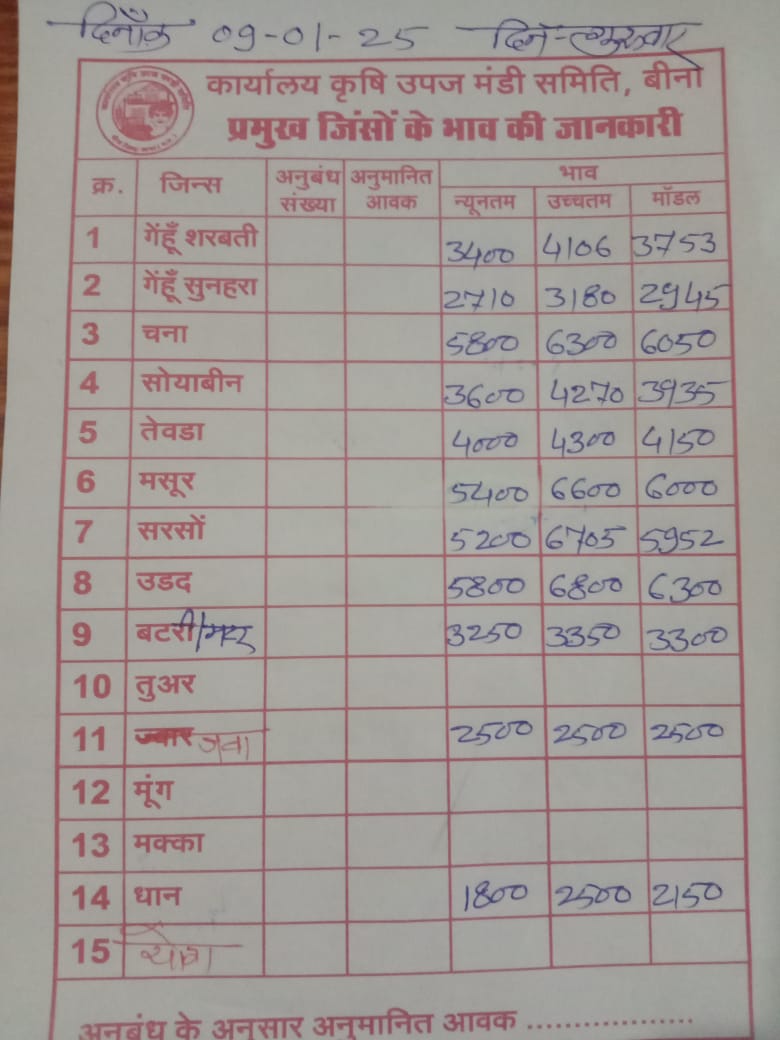 दिनाँक 09-01-25 दिन-गुरुवार
कार्यालय कृषि उपज मंडी समिति, बीना
प्रमुख जिंसों के भाव की जानकारी
क्र. जिन्स अनुबंध संख्या अनुमानित आवक भाव
न्यूनतम उच्चतम मॉडल
1 गेंहूँ शरबती 3400 4106 3753
2 गेंहूँ सुनहरा 2710 3180 2945
3 चना 5800 6300 6050
4 सोयाबीन 3600 4270 3935
5 तेवडा 4000 4300 4150
6 मसूर 5400 6600 6000
7 सरसों 5200 6705 5952
8 उडद 5800 6800 6300
9 बटरी/मटर 3250 3350 3300
10 तुअर
11 ज्वार जवा 2500 2500 2500
12 मूंग
13 मक्का
14 धान 1800 2500 2150
15
अनुबंध के अनुसार अनुमानित आवक ..................